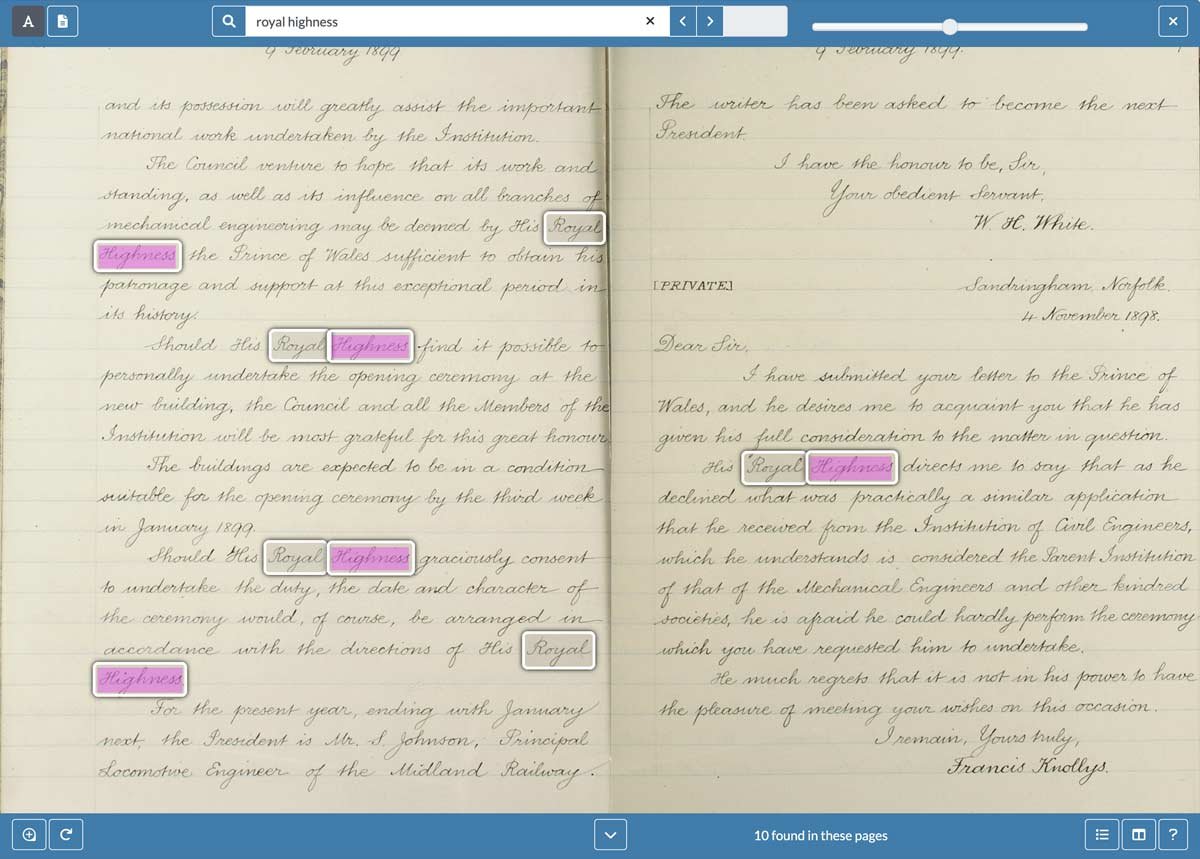 A
royal highness
9 February 1899
and its possession will greatly assist the important
national work undertaken by the Institution.
The Council venture to hope that its work and
standing, as well as its influence on all branches of
mechanical engineering may be deemed by His Royal
Highness the Prince of Wales sufficient to obtain his
patronage and support at this exceptional period in
its history.
Should His Royal Highness find it possible to
personally undertake the opening ceremony at the
new building, the Council and all the Members of the
Institution will be most grateful for this great honour.
The buildings are expected to be in a condition
suitable for the opening ceremony by the third week
in January 1899.
Should His Royal Highness graciously consent
to undertake the duty, the date and character of
the ceremony would, of course, be arranged in
accordance with the directions of His Royal
Highness
For the present year, ending with January
next, the President is Mr. S. Johnson, Principal
Locomotive Engineer of the Midland Railway.
9 February 1899.
The writer has been asked to become the next
President.
I have the honour to be, Sir,
Your obedient Servant,
W. H. White.
[PRIVATE]
Sandringham, Norfolk.
4 November 1898.
Dear Sir,
I have submitted your letter to the Prince of
Wales, and he desires me to acquaint you that he has
given his full consideration to the matter in question.
His Royal Highness directs me to say that as he
declined what was practically a similar application
that he received from the Institution of Civil Engineers,
which he understands is considered the Parent Institution
of that of the Mechanical Engineers and other kindred
societies, he is afraid he could hardly perform the ceremony
which you have requested him to undertake.
He much regrets that it is not in his power to have
the pleasure of meeting your wishes on this occasion.
I remain, Yours truly,
Francis Knollys.
10 found in these pages
?